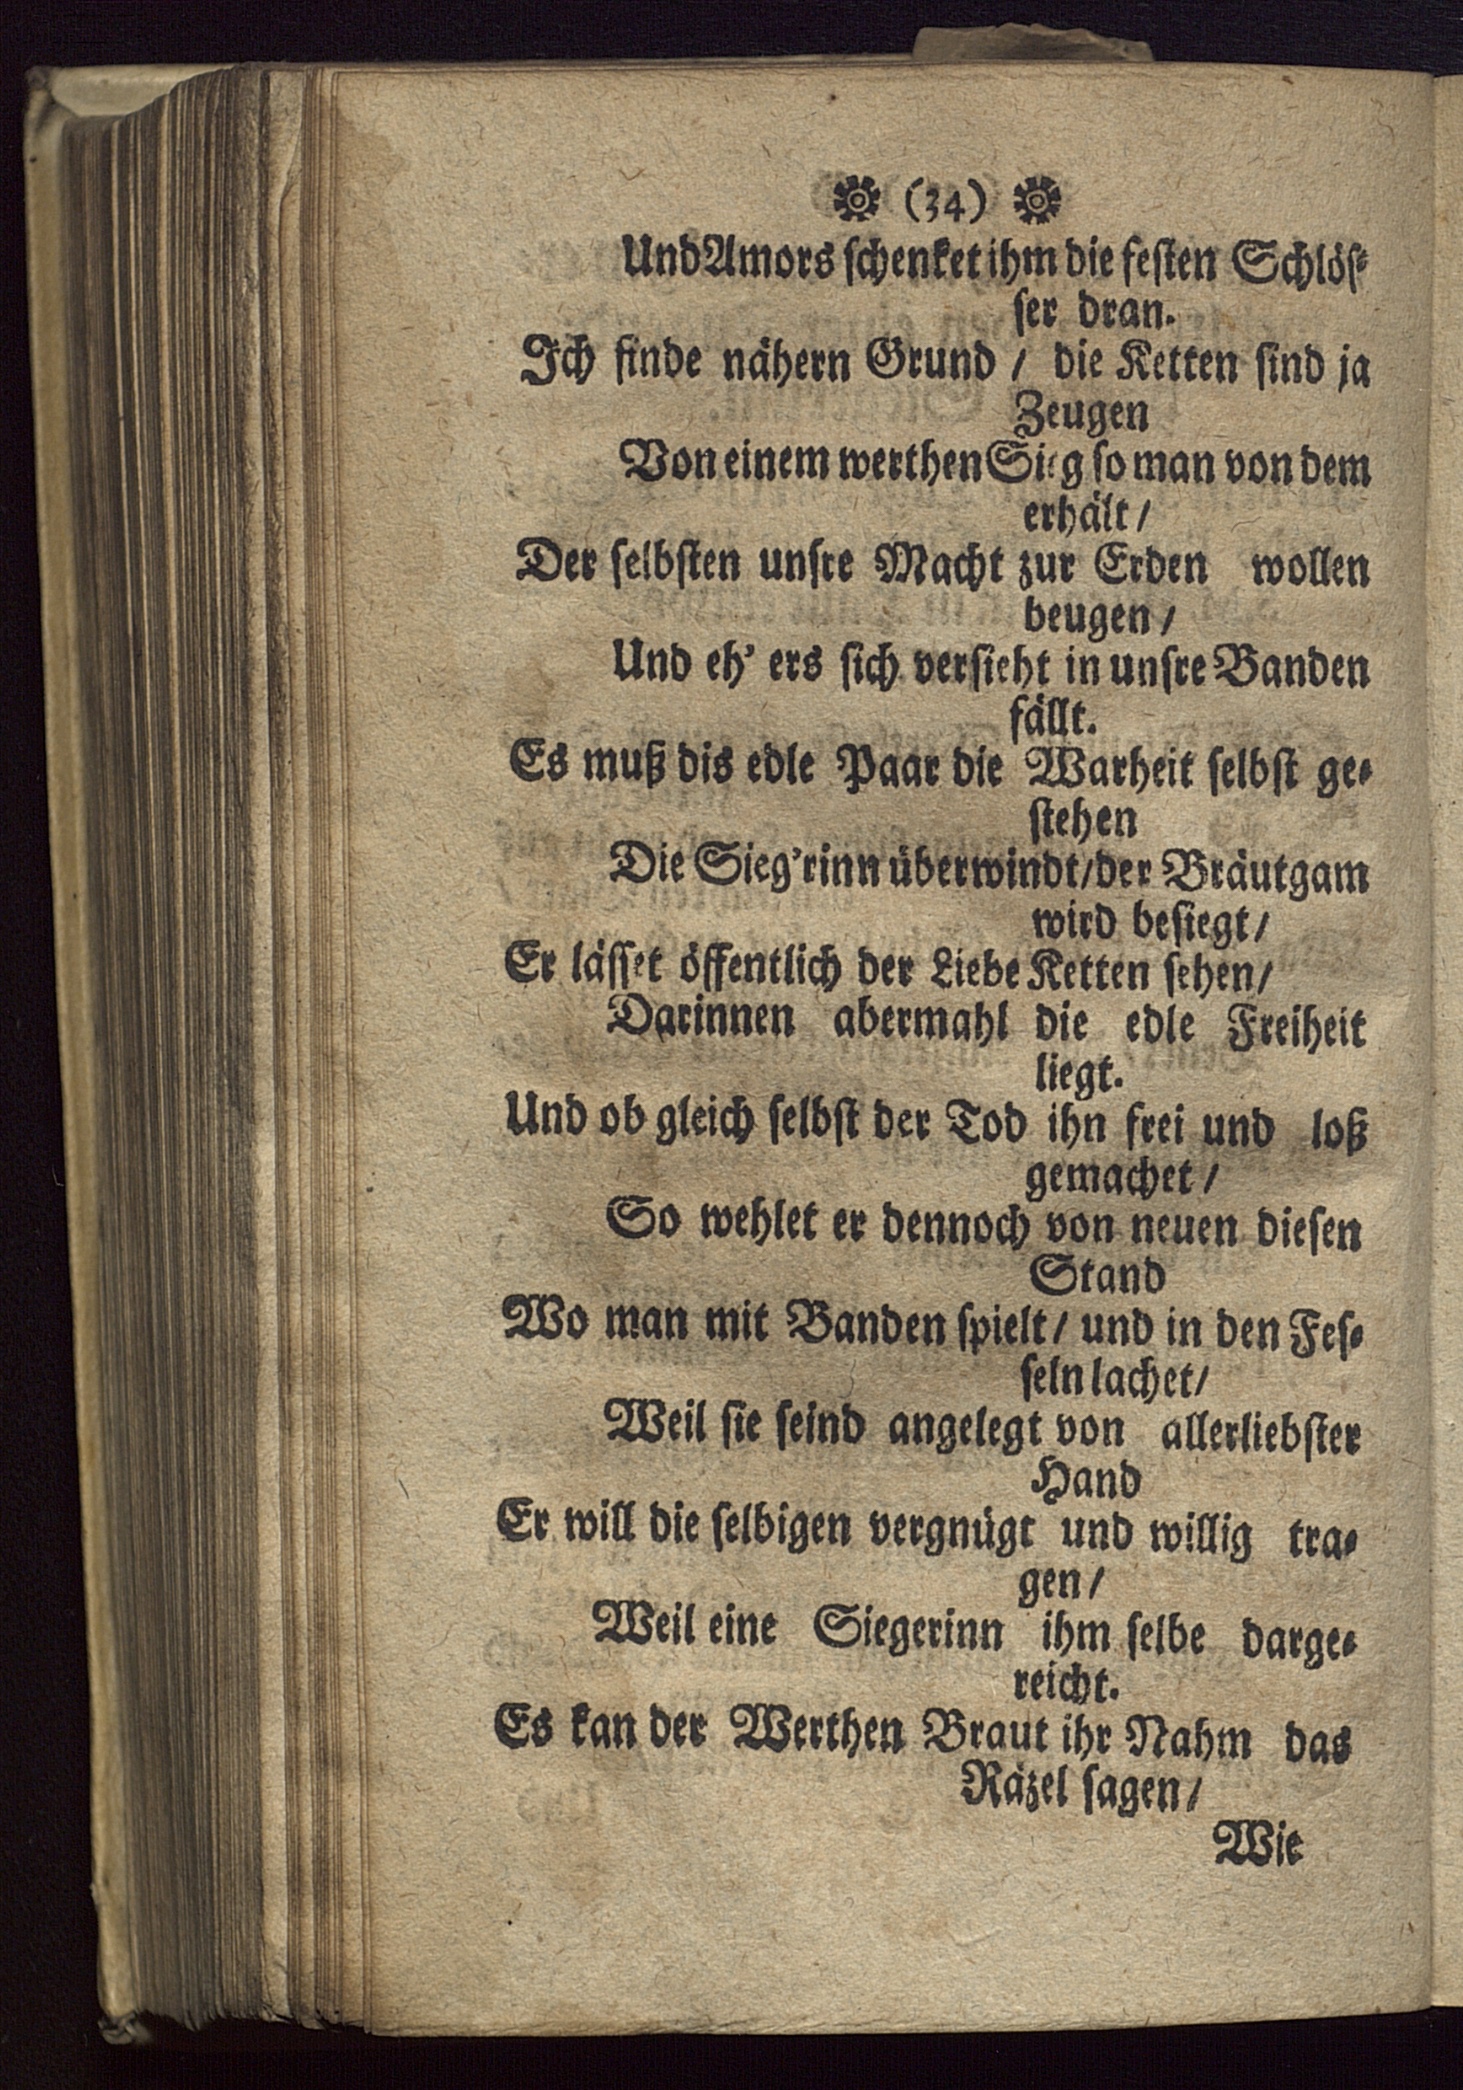 (34)
Und Amors ſchenket ihm die feſten Schlöſ-
ſer dran.
Ich finde nähern Grund / die Ketten ſind ja
Zeugen
Von einem werthen Sieg ſo man von dem
erhält /
Der ſelbſten unſre Macht zur Erden wollen
beugen /
Und eh' ers ſich verſieht in unſre Banden
fällt.
Es muß dis edle Paar die Warheit ſelbſt ge-
ſtehen
Die Sieg'rinn überwindt / der Bräutgam
wird beſiegt /
Er läſſet öffentlich der Liebe Ketten ſehen /
Darinnen abermahl die edle Freiheit
liegt.
Und ob gleich ſelbſt der Tod ihn frei und loß
gemachet /
So wehlet er dennoch von neuen dieſen
Stand
Wo man mit Banden ſpielt / und in den Feſ-
ſeln lachet /
Weil ſie ſeind angelegt von allerliebſter
Hand
Er will die ſelbigen vergnügt und willig tra-
gen /
Weil eine Siegerinn ihm ſelbe darge-
reicht.
Es kan der Werthen Braut ihr Nahm das
Räzel ſagen /
Wie